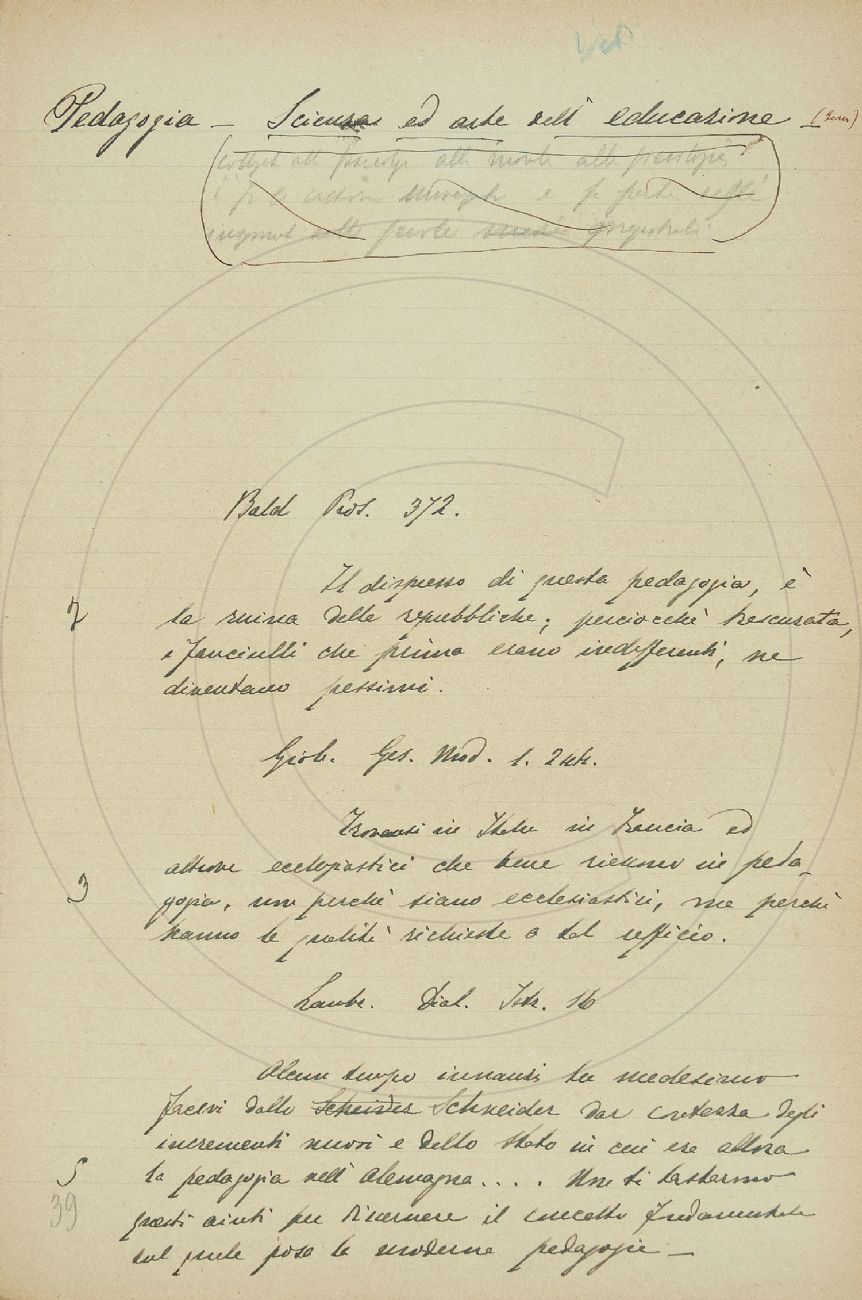 Pedagogia — Scienza ed arte dell' educazione —
alla morale alla
e
Bald Pros. 372.
Il dispresso di questa pedagogia, è
2
la ruina delle repubbliche; perciocchè trascurata,
i fanciulli che prima erano indifferenti, ne
diventano pessimi.
Giob. Ges. Mod. 1. 244.
Trovansi in Italia in Francia ed
altrove ecclesiastici che bene riescono in peda-
3
gogia, non perchè siano ecclesiastici, ma perchè
hanno le qualità richieste a tal ufficio.
Lambr. Dial. Istr. 16
Alcun tempo innanzi tu medesimo
facevi dallo Scheider Schneider dar contezza degli
incrementi nuovi e dello stato in cui era allora
5
la pedagogia nell' Alemagna.... Non ti bastarono
39
questi aiuti per discernere il concetto fondamentale
sul quale posa la moderna pedagogia —